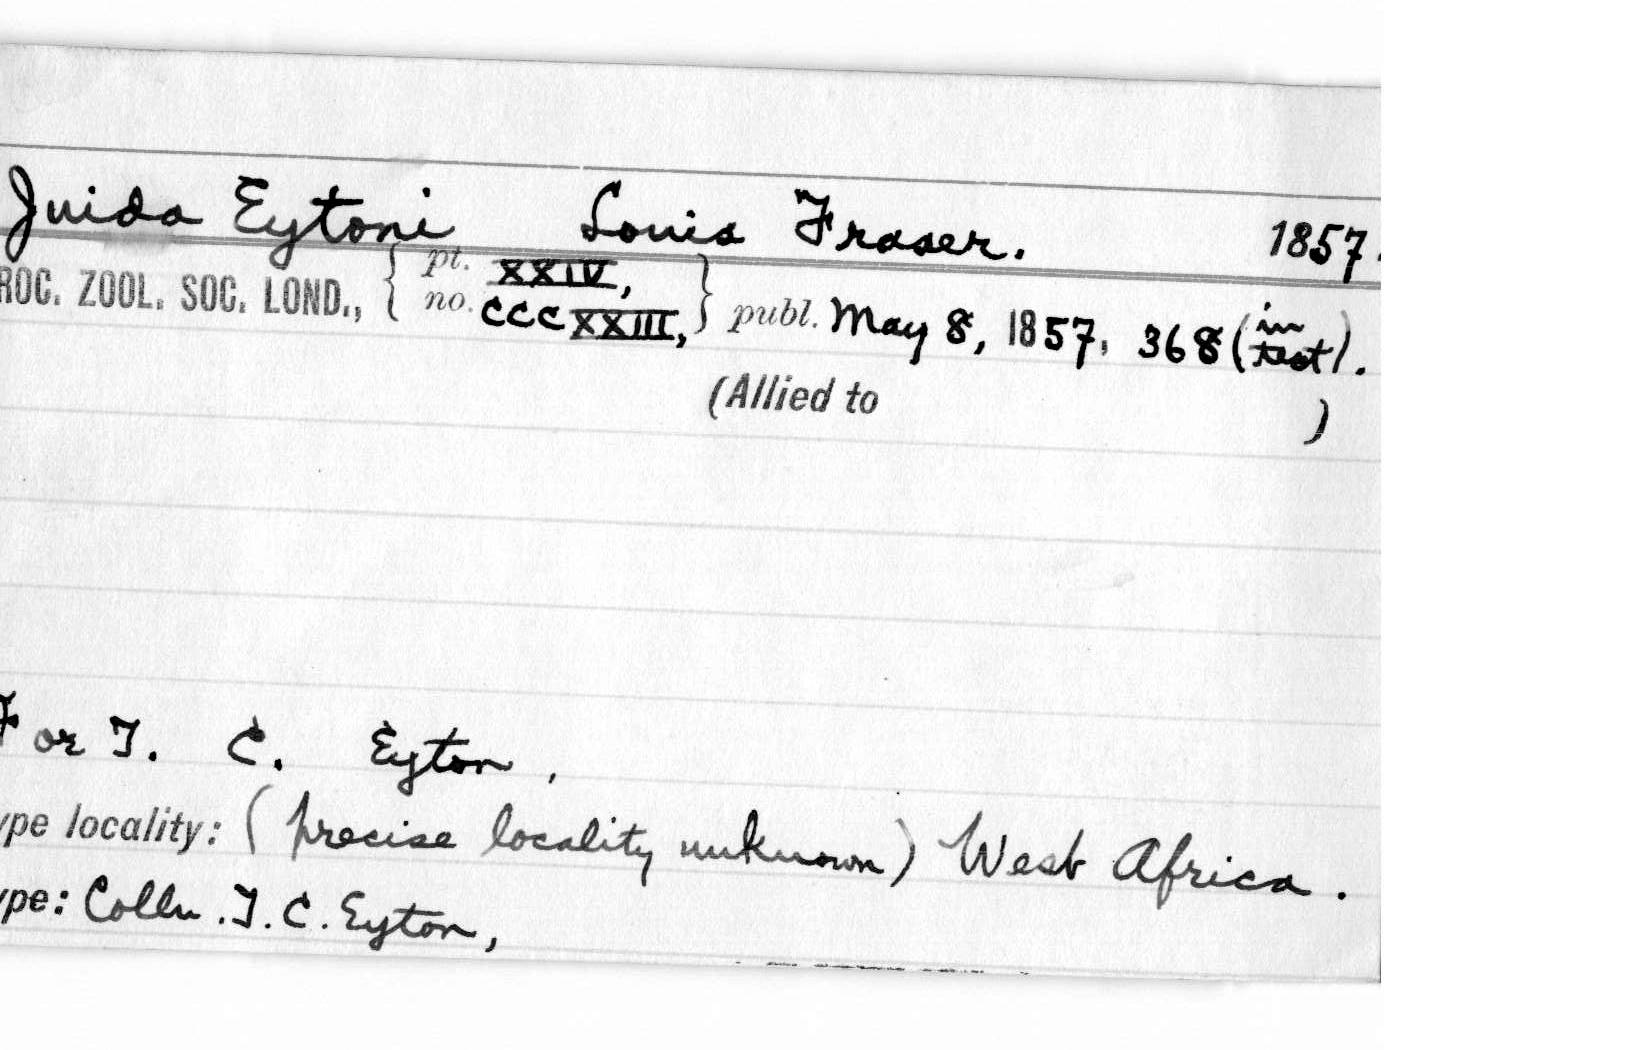 Juida Eytoni Louis Fraser. 1857.
ROC. ZOOL. SOC. LOND., { pt. XXIV, no. CCCXXIII, } publ. May 8, 1857, 368 (in text).
(Allied to )
For T. C. Eyton,
ype locality: (precise locality unknown) West Africa.
ype: Colln. T. C. Eyton,